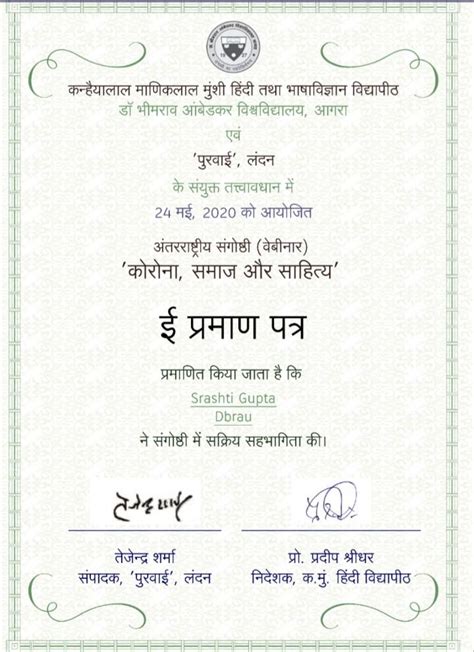 कन्हैयालाल माणिकलाल मुंशी हिंदी तथा भाषाविज्ञान विद्यापीठ
डॉ भीमराव आंबेडकर विश्वविद्यालय, आगरा
एवं
'पुरवाई', लंदन
के संयुक्त तत्त्वावधान में
24 मई, 2020 को आयोजित
अंतरराष्ट्रीय संगोष्ठी (वेबीनार)
'कोरोना, समाज और साहित्य'
ई प्रमाण पत्र
प्रमाणित किया जाता है कि
Srashti Gupta
Dbrau
ने संगोष्ठी में सक्रिय सहभागिता की।
तेजेन्द्र शर्मा
संपादक, 'पुरवाई', लंदन
प्रो. प्रदीप श्रीधर
निदेशक, क.मुं. हिंदी विद्यापीठ